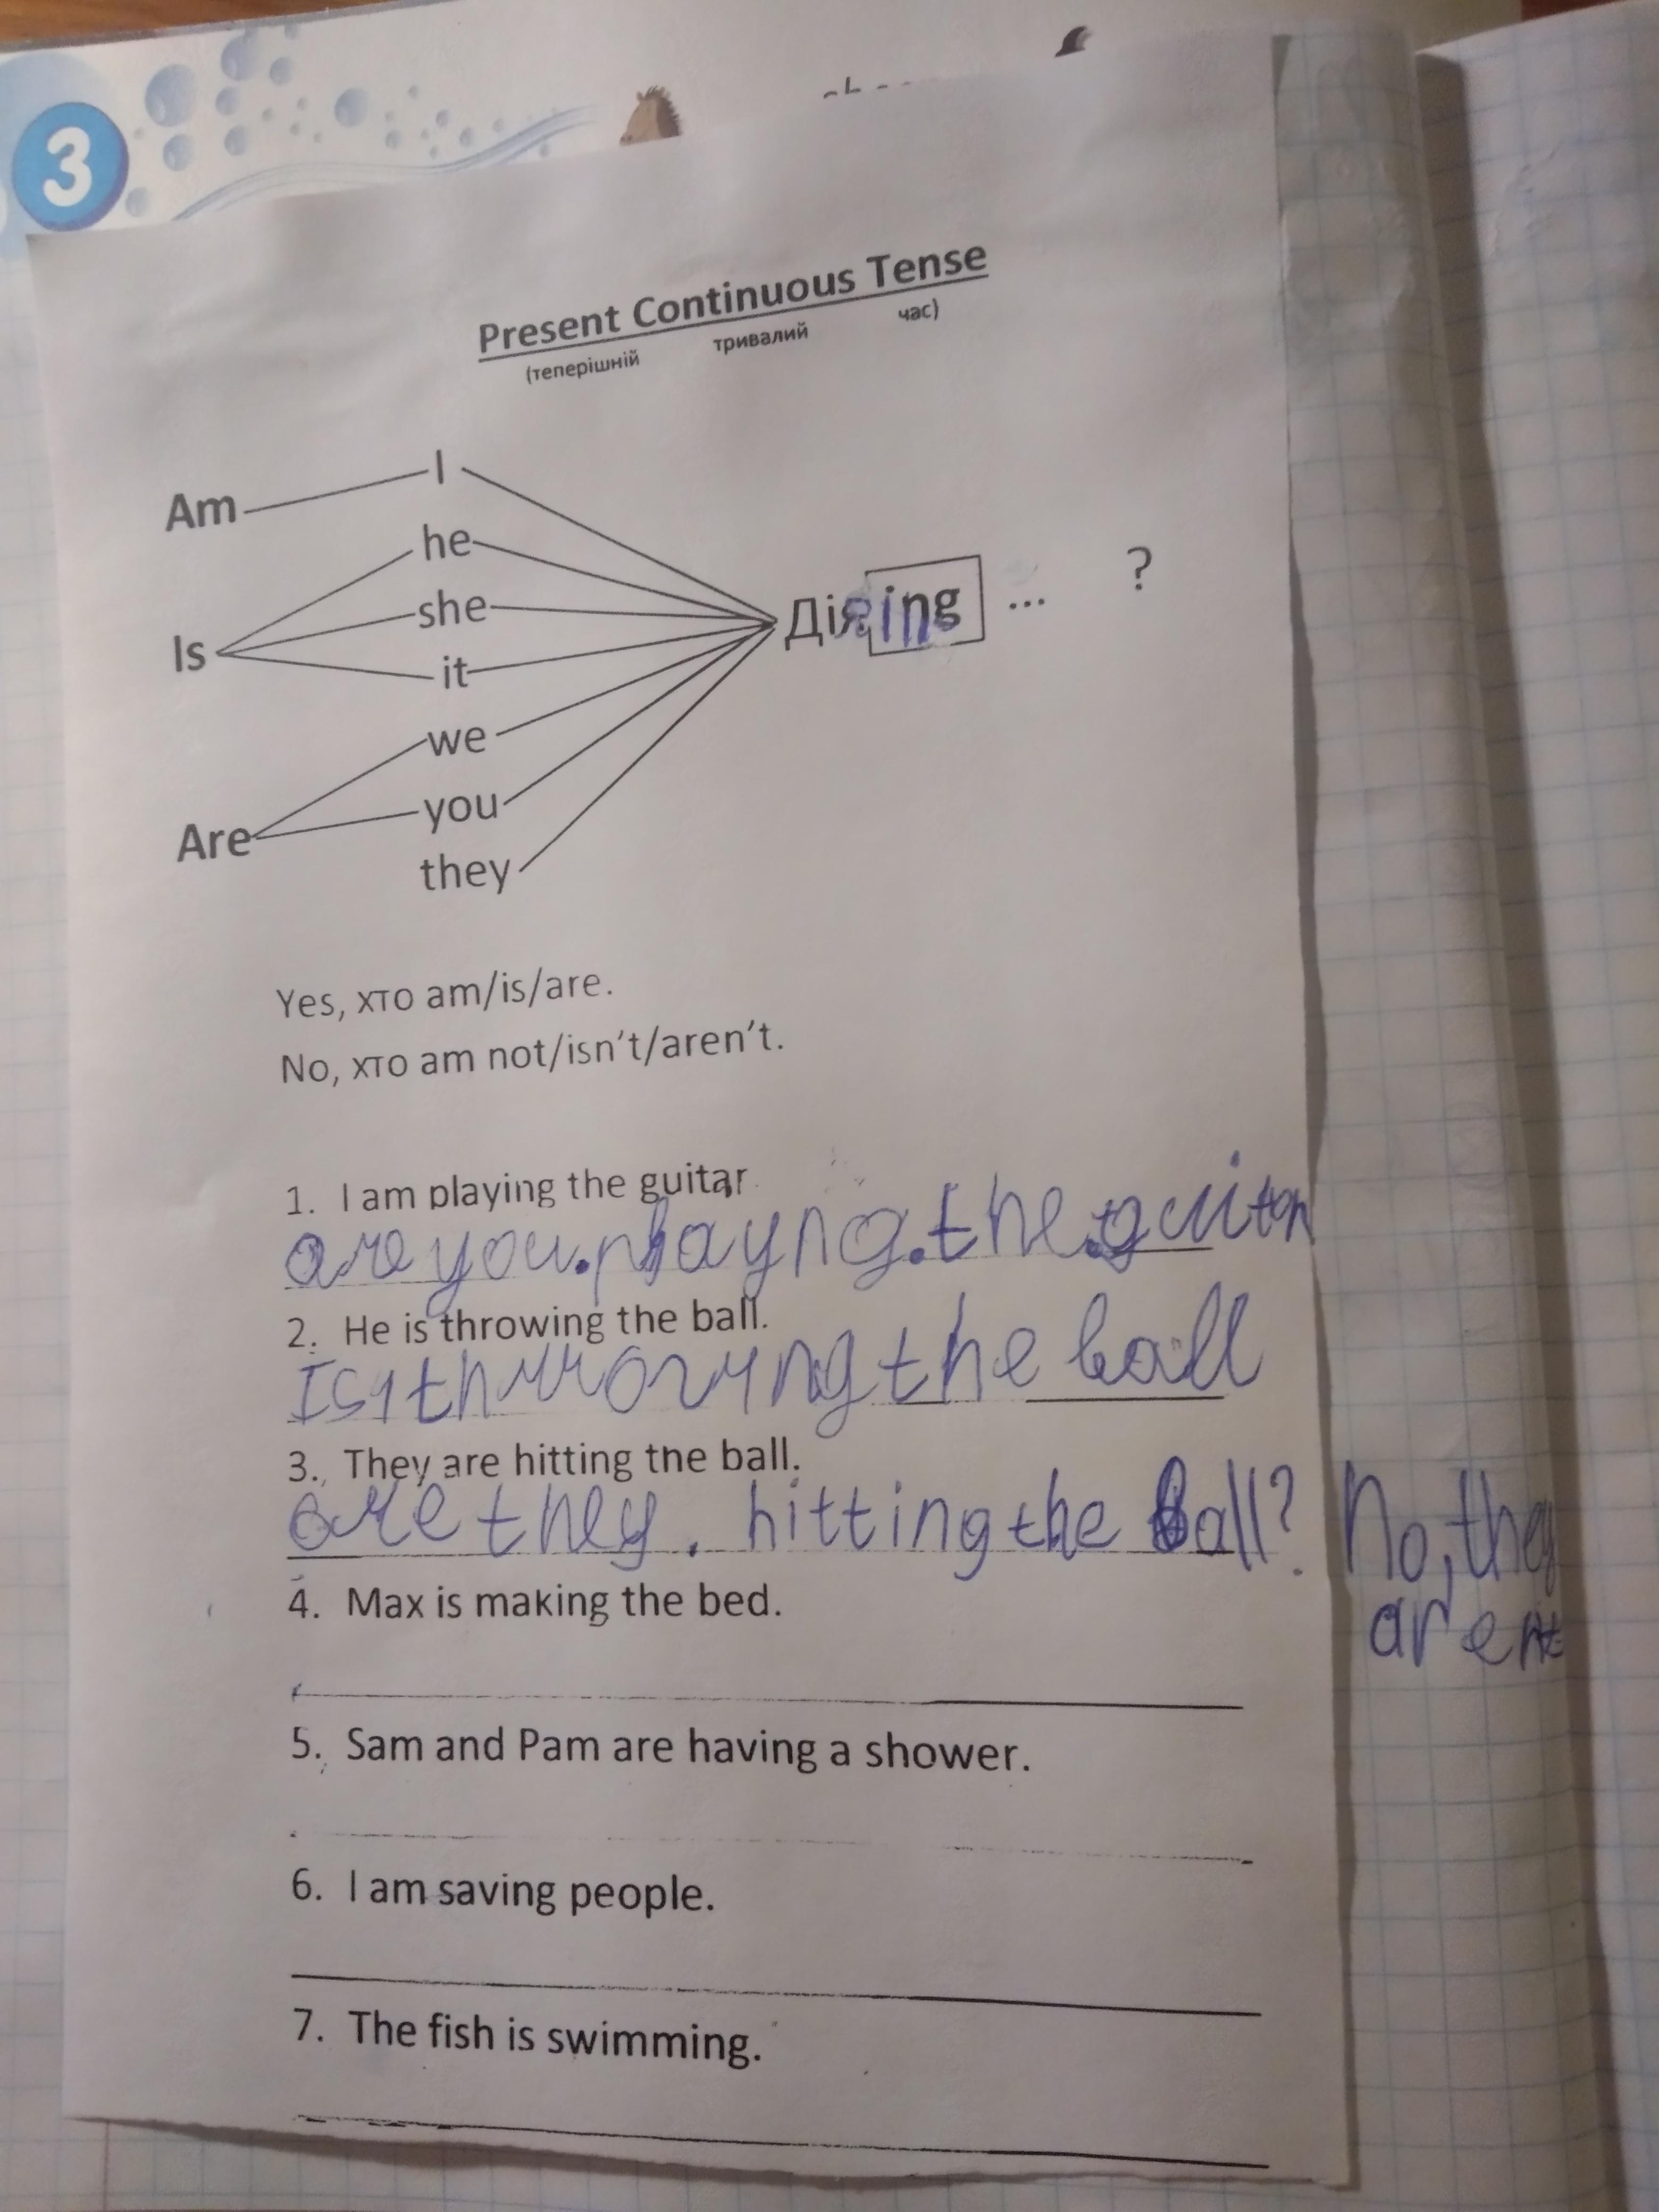 3
Present Continuous Tense
(теперішній тривалий час)
Am
I
he
she
Is
it
we
you
Are
they
Діяing ... ?
Yes, хто am/is/are.
No, хто am not/isn't/aren't.
1. I am playing the guitar.
are you. playng. the. guitar
2. He is throwing the ball.
Is the ball
3. They are hitting the ball.
are they. hitting the ball? No, they
arent
4. Max is making the bed.
5. Sam and Pam are having a shower.
6. I am saving people.
7. The fish is swimming.